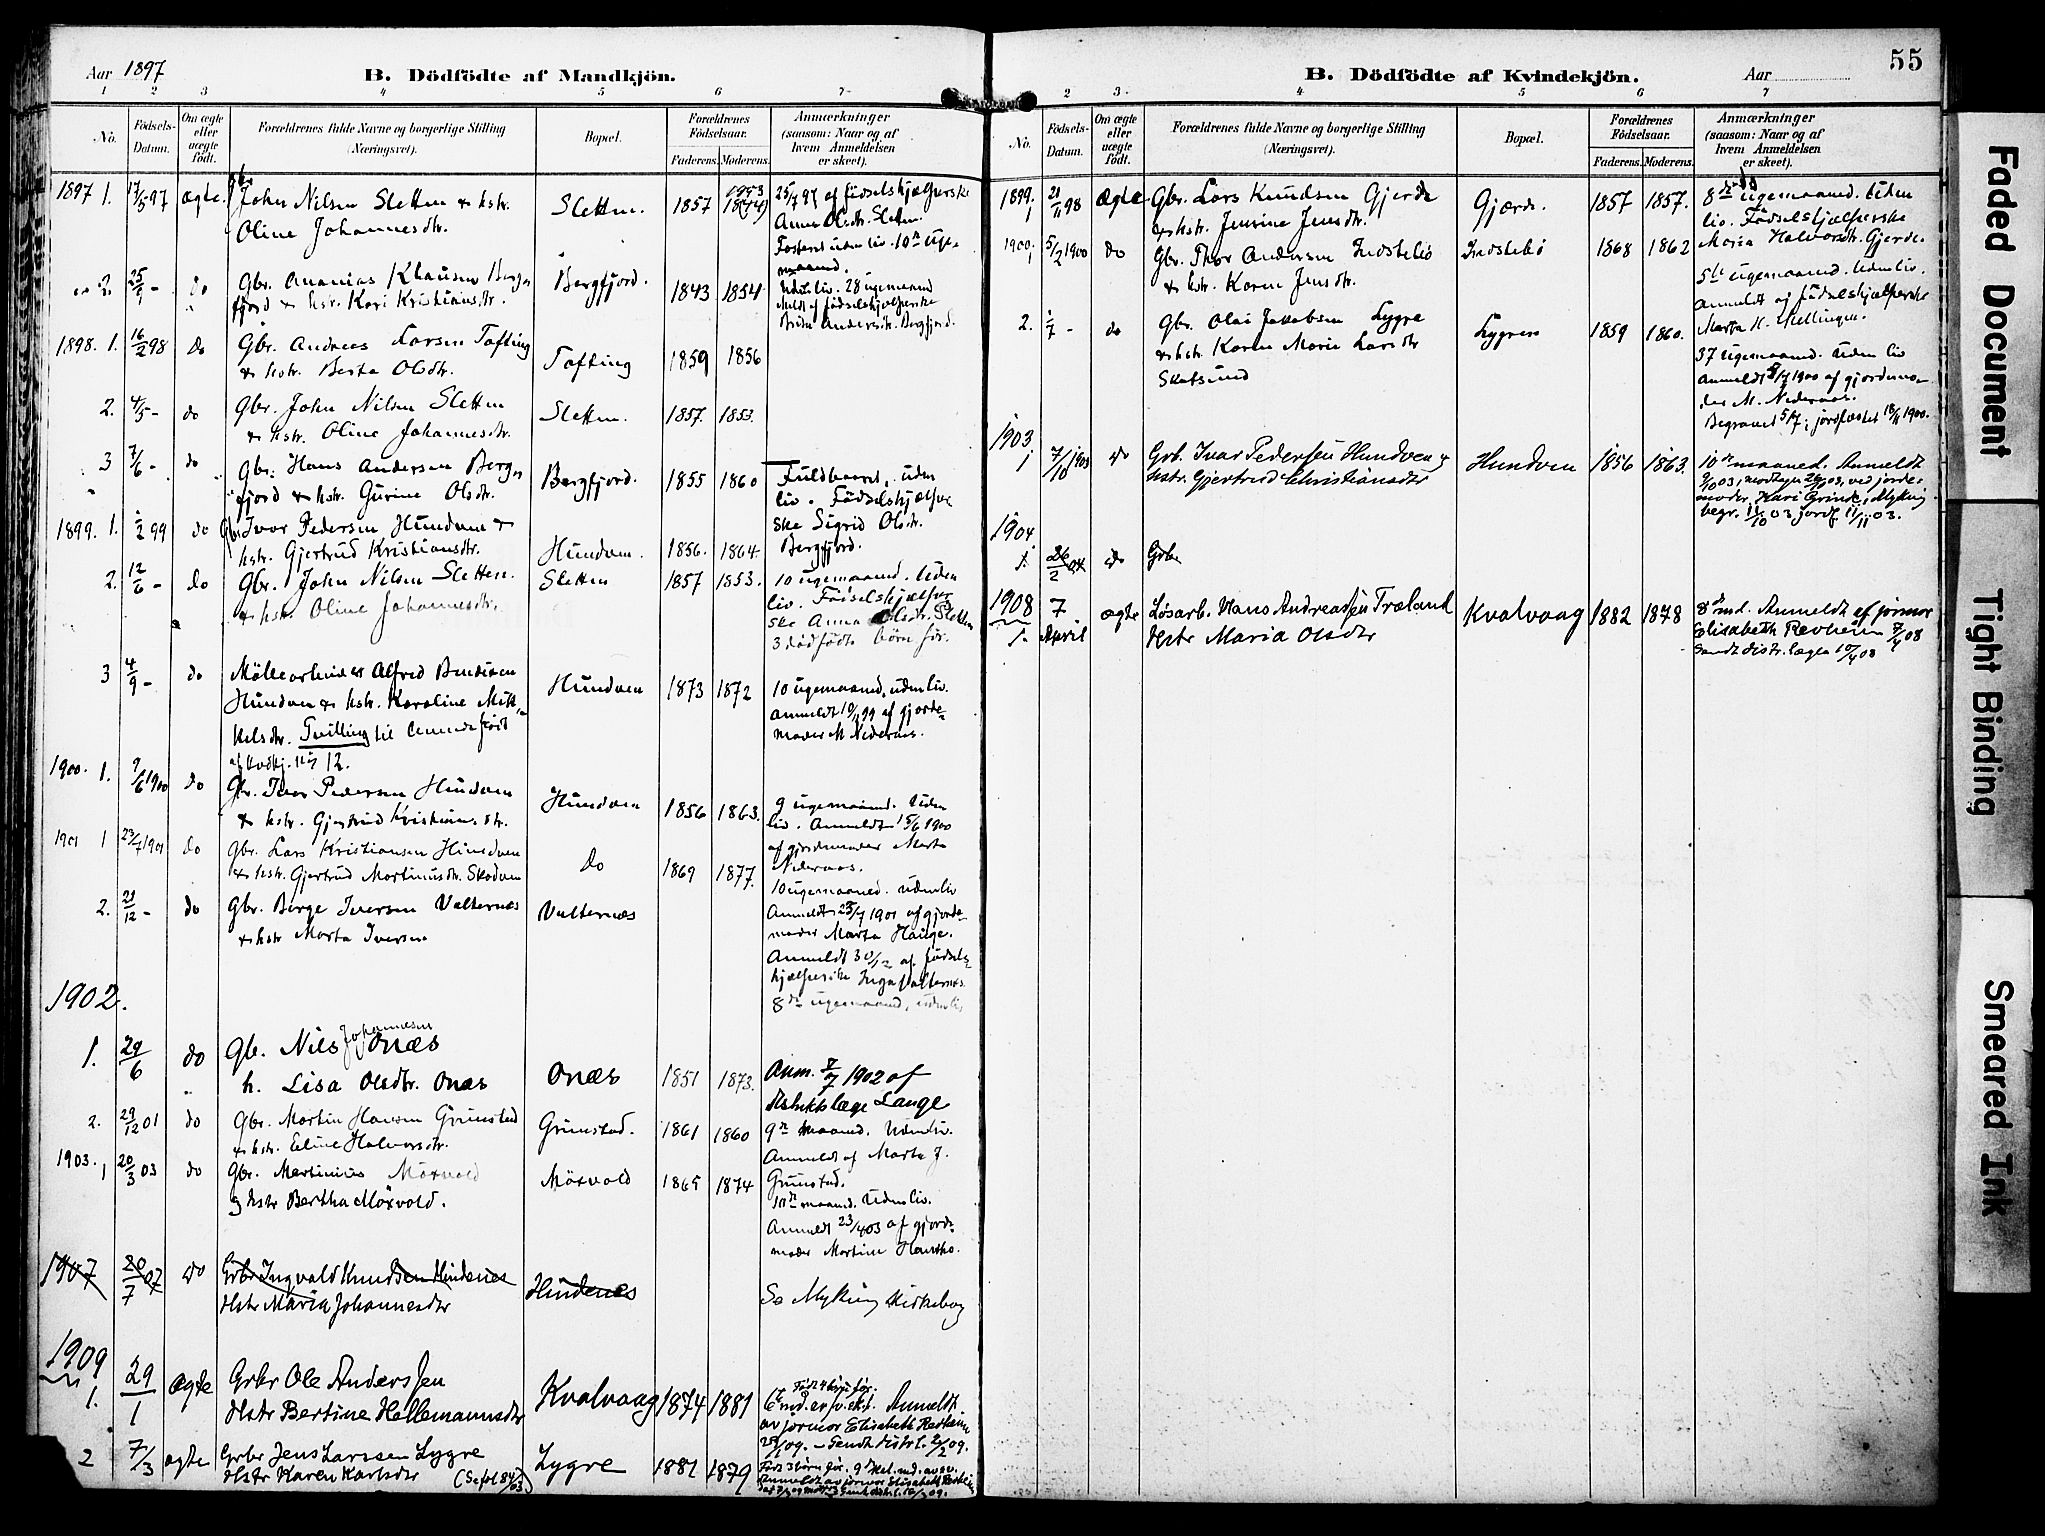 Aar 1897
B. Dödfödte af Mandkjön.
1 2 3 4 5 6 7
No.
Födsels-Datum.
Om ægte eller uægte födt.
Forældrenes fulde Navne og borgerlige Stilling (Næringsvei).
Bopæl.
Forældrenes Födselsaar.
Faderens. Moderens.
Anmærkninger (saasom: Naar og af hvem Anmeldelsen er skeet).
1897 1. 17/5 97 ægte. John Nilsen Sletten & hstr. Sletten. 1857 1853
Oline Johannesdtr.
25/7 97 af födselshjælperske
Anna Olsdtr. Sletten.
Fosteret uden liv. 10de uge-
maaned.
2. do Gbr. Ananias Klausen Berge-
fjord & hstr. Kari Kristiansdtr. Bergfjord. 1843 1854
Uden liv. 28 ugemaaned
Meldt af födselshjælperske
Brita Andersdtr. Bergfjord.
1898. 1. 16/2 98 do Gbr. Andreas Larsen Tofting
& hstr. Berta Olsdtr. Tofting 1859 1856
2. 4/5 - do Gbr. John Nilsen Sletten
& hstr. Oline Johannesdtr. Sletten. 1857. 1853.
3 7/6 - do Gbr. Hans Andersen Berge-
fjord & hstr. Gurine Olsdtr. Bergfjord. 1855 1860
Fuldbaaret, uden
liv. Födselshjælper-
ske Sigrid Olsdtr.
Bergfjord.
1899. 1. 1/2 99 do Gbr. Ivar Pedersen Hundven &
hstr. Gjertrud Kristiansdtr. Hundven. 1856. 1864
2. 12/6 - do Gbr. John Nilsen Sletten.
& hstr. Oline Johannesdtr. Sletten 1857 1853.
10 ugemaaned. Uden
liv. Födselshjælper
ske Anna Olsdtr. Sletten
3 dödfödte börn för.
3 4/9 - do Möllearbeider Alfred Bendixen
Hundven & hstr. Karoline Mik-
kelsdtr. Tvilling til levende född
af Kvdkj. No 12.
Hundven 1873 1872
10 ugemaaned, uden liv.
Anmeldt 10/9 99 af gjorde-
moder M Nederaas.
1900. 1. 9/6 1900 do Gbr. Ivar Pedersen Hundven
& hstr. Gjertrud Kristiansdtr. Hundven 1856 1863.
9 ugemaaned. Uden
liv. Anmeldt 15/6 1900
af gjordemoder Marta
Nederaas.
1901 1 23/7 1901 do Gbr. Lars Kristiansen Hundven
& hstr. Gjertrud Mortinusdtr. Skodven do 1869 1877.
10 ugemaaned. uden liv
Anmeldt 25/7 1901 af gjorde-
moder Marta Hauge.
2. 21/12 - do Gbr. Börge Iversen Valternæs
& hstr Marta Iversen Valternæs
Anmeldt 30/12 af födsels-
hjælperske Inga Valternæs.
8de ugemaaned, uden liv
1902.
1. 29/6 do Gb. Nils Johannesen Onæs
h. Lisa Olsdtr. Onæs Onæs 1851 1873.
Anm. 2/7 1902 af
distriktslæge Lange
2. 29/12 01 do Gbr. Martin Hansen Grimstad
& hstr. Eline Halvorsdtr. Grimstad. 1861 1860
9de maaned. Uden liv.
Anmeldt af Marta J.
Grimstad.
1903. 1 20/3 03 do Gbr. Martinius Möxvold
og hstr Bertha Möxvold. Möxvold 1865 1874
10de maaned. Uden liv.
Anmeldt 23/4 03 af gjorde-
moder Martine Hantho.
1907 20/7 07 do Grbr Ingvald Knudsen Hindenes
Hstr Maria Johannesdtr Hindenes
Se Myking Kirkebog
1909
1. 29/1 ægte Grbr Ole Anderssen
Hstr Bertine Hellemannsdtr Kvalvaag 1874 1881
Födt 4 börn för.
Anmeldt
av jormor Elisabeth Revheim
25/1 09. - Sendt distr.l. 2/2 09.
2 7/3 ægte Grbr Jens Larssen Lygre
Hstr Karen Karlsdtr (Se fol 84/03) Lygre 1881 1879
Födt 3 börn för.
Anmeldt av jormor Elisabeth Revheim
55
B. Dödfödte af Kvindekjön.
Aar
2 3 4 5 6 7
No.
Födsels-Datum.
Om ægte eller uægte födt.
Forældrenes fulde Navne og borgerlige Stilling (Næringsvei).
Bopæl.
Forældrenes Födselsaar.
Faderens. Moderens.
Anmærkninger (saasom: Naar og af hvem Anmeldelsen er skeet).
1899. 1 21/11 98 ægte Gbr. Lars Knudsen Gjerde
& hstr. Jensine Jensdtr. Gjærde. 1857 1857.
8de ugemaaned. Uden
liv. Födselshjælperske
Maria Halvorsdtr. Gjerde.
1900. 1 5/2 1900 do Gbr. Thor Andersen Indstebö
& hstr. Karen Jensdtr. Indstebö 1868 1862
5te ugemaaned. Uden liv.
Anmeldt af födselshjælperske
Marta H. Mellingen.
2. 1/7 - do Gbr. Olai Jakobsen Lygre
& hstr Karen Marie Larsdtr
Skotsund Lygren 1859 1860.
37 ugemaaned. Uden liv
Anmeldt 8/7 1900 af gjordemo-
der M. Nederaas.
Begravet 5/7; jordfæstet 18/11 1900.
1903
1 7/10 1903 do Grb. Ivar Pedersen Hundven &
hstr. Gjertrud Christiansdtr Hundven 1856 1863.
10de maaned. Anmeldt
9/10 03, modtaget 26/10 03, ved jorde-
moder Kari Grinde, Myking
begr. 11/10 03 jordf. 11/11 03.
1904
1. 26/2 04 do Grbr
1908
1. 7 April ægte Lösarb. Hans Andreassen Træland
Hstr Maria Olsdtr Kvalvaag 1882 1878
8de md. Anmeldt af jormor
Elisabeth Revheim 7/4 08
Sendt distr. læge 10/4 08
Faded Document
Tight Binding
Smeared Ink